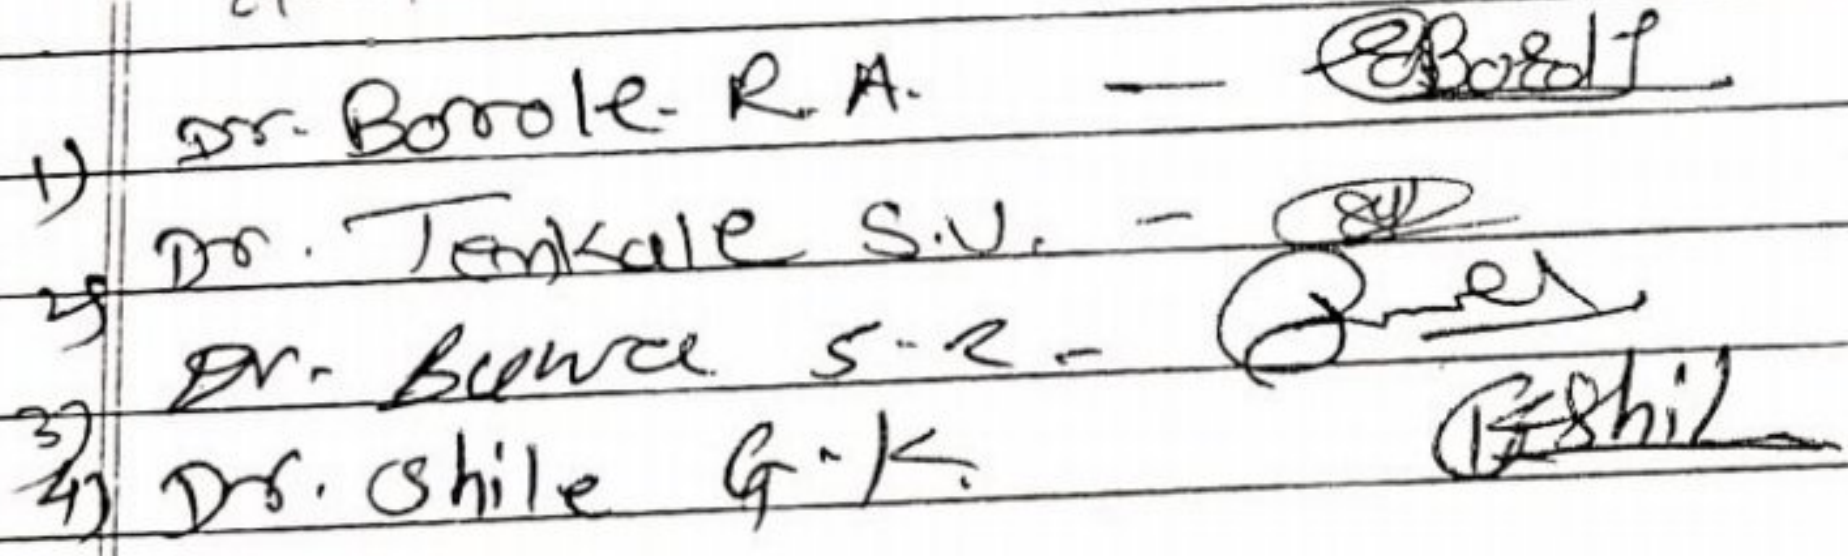 1) Dr. Borole R. A. —
2) Dr. Tenkale S.V. -
3) Dr. Buwa S-R -
4) Dr. Shile G.K.